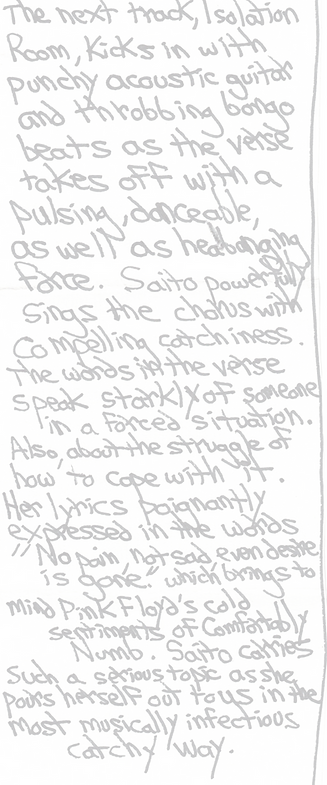 The next track, Isolation
Room, Kicks in with
punchy acoustic guitar
and throbbing bongo
beats as the verse
takes off with a
pulsing, danceable,
as well as headbanging
force. Saito powerfully
sings the chorus with
compelling catchiness.
The words in the verse
speak starkly of someone
in a forced situation.
Also about the struggle of
how to cope with it.
Her lyrics poignantly
expressed in the words
"No pain not sad even desire
is gone." which brings to
mind Pink Floyd's cold
sentiments of Comfortably
Numb. Saito carries
such a serious topic as she
pours herself out to us in the
most musically infectious
catchy way.